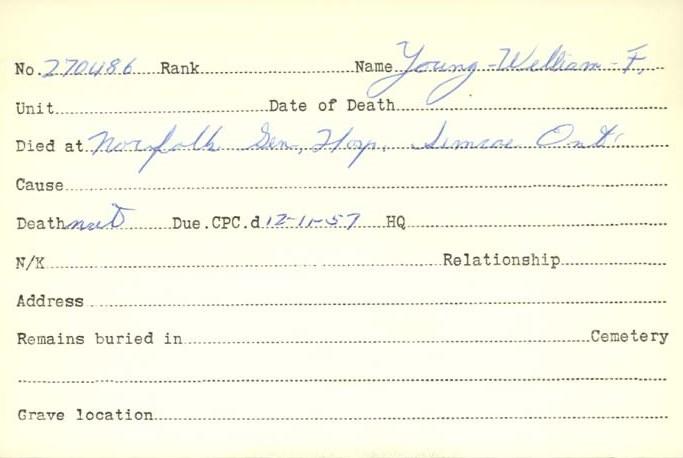 No. 270486 Rank Name Young - William - F.
Unit Date of Death
Died at Norfolk Gen, Hosp, Simcoe Ont.
Cause
Death not Due.CPC.d 12-11-57 HQ
N/K Relationship
Address
Remains buried in Cemetery
Grave location